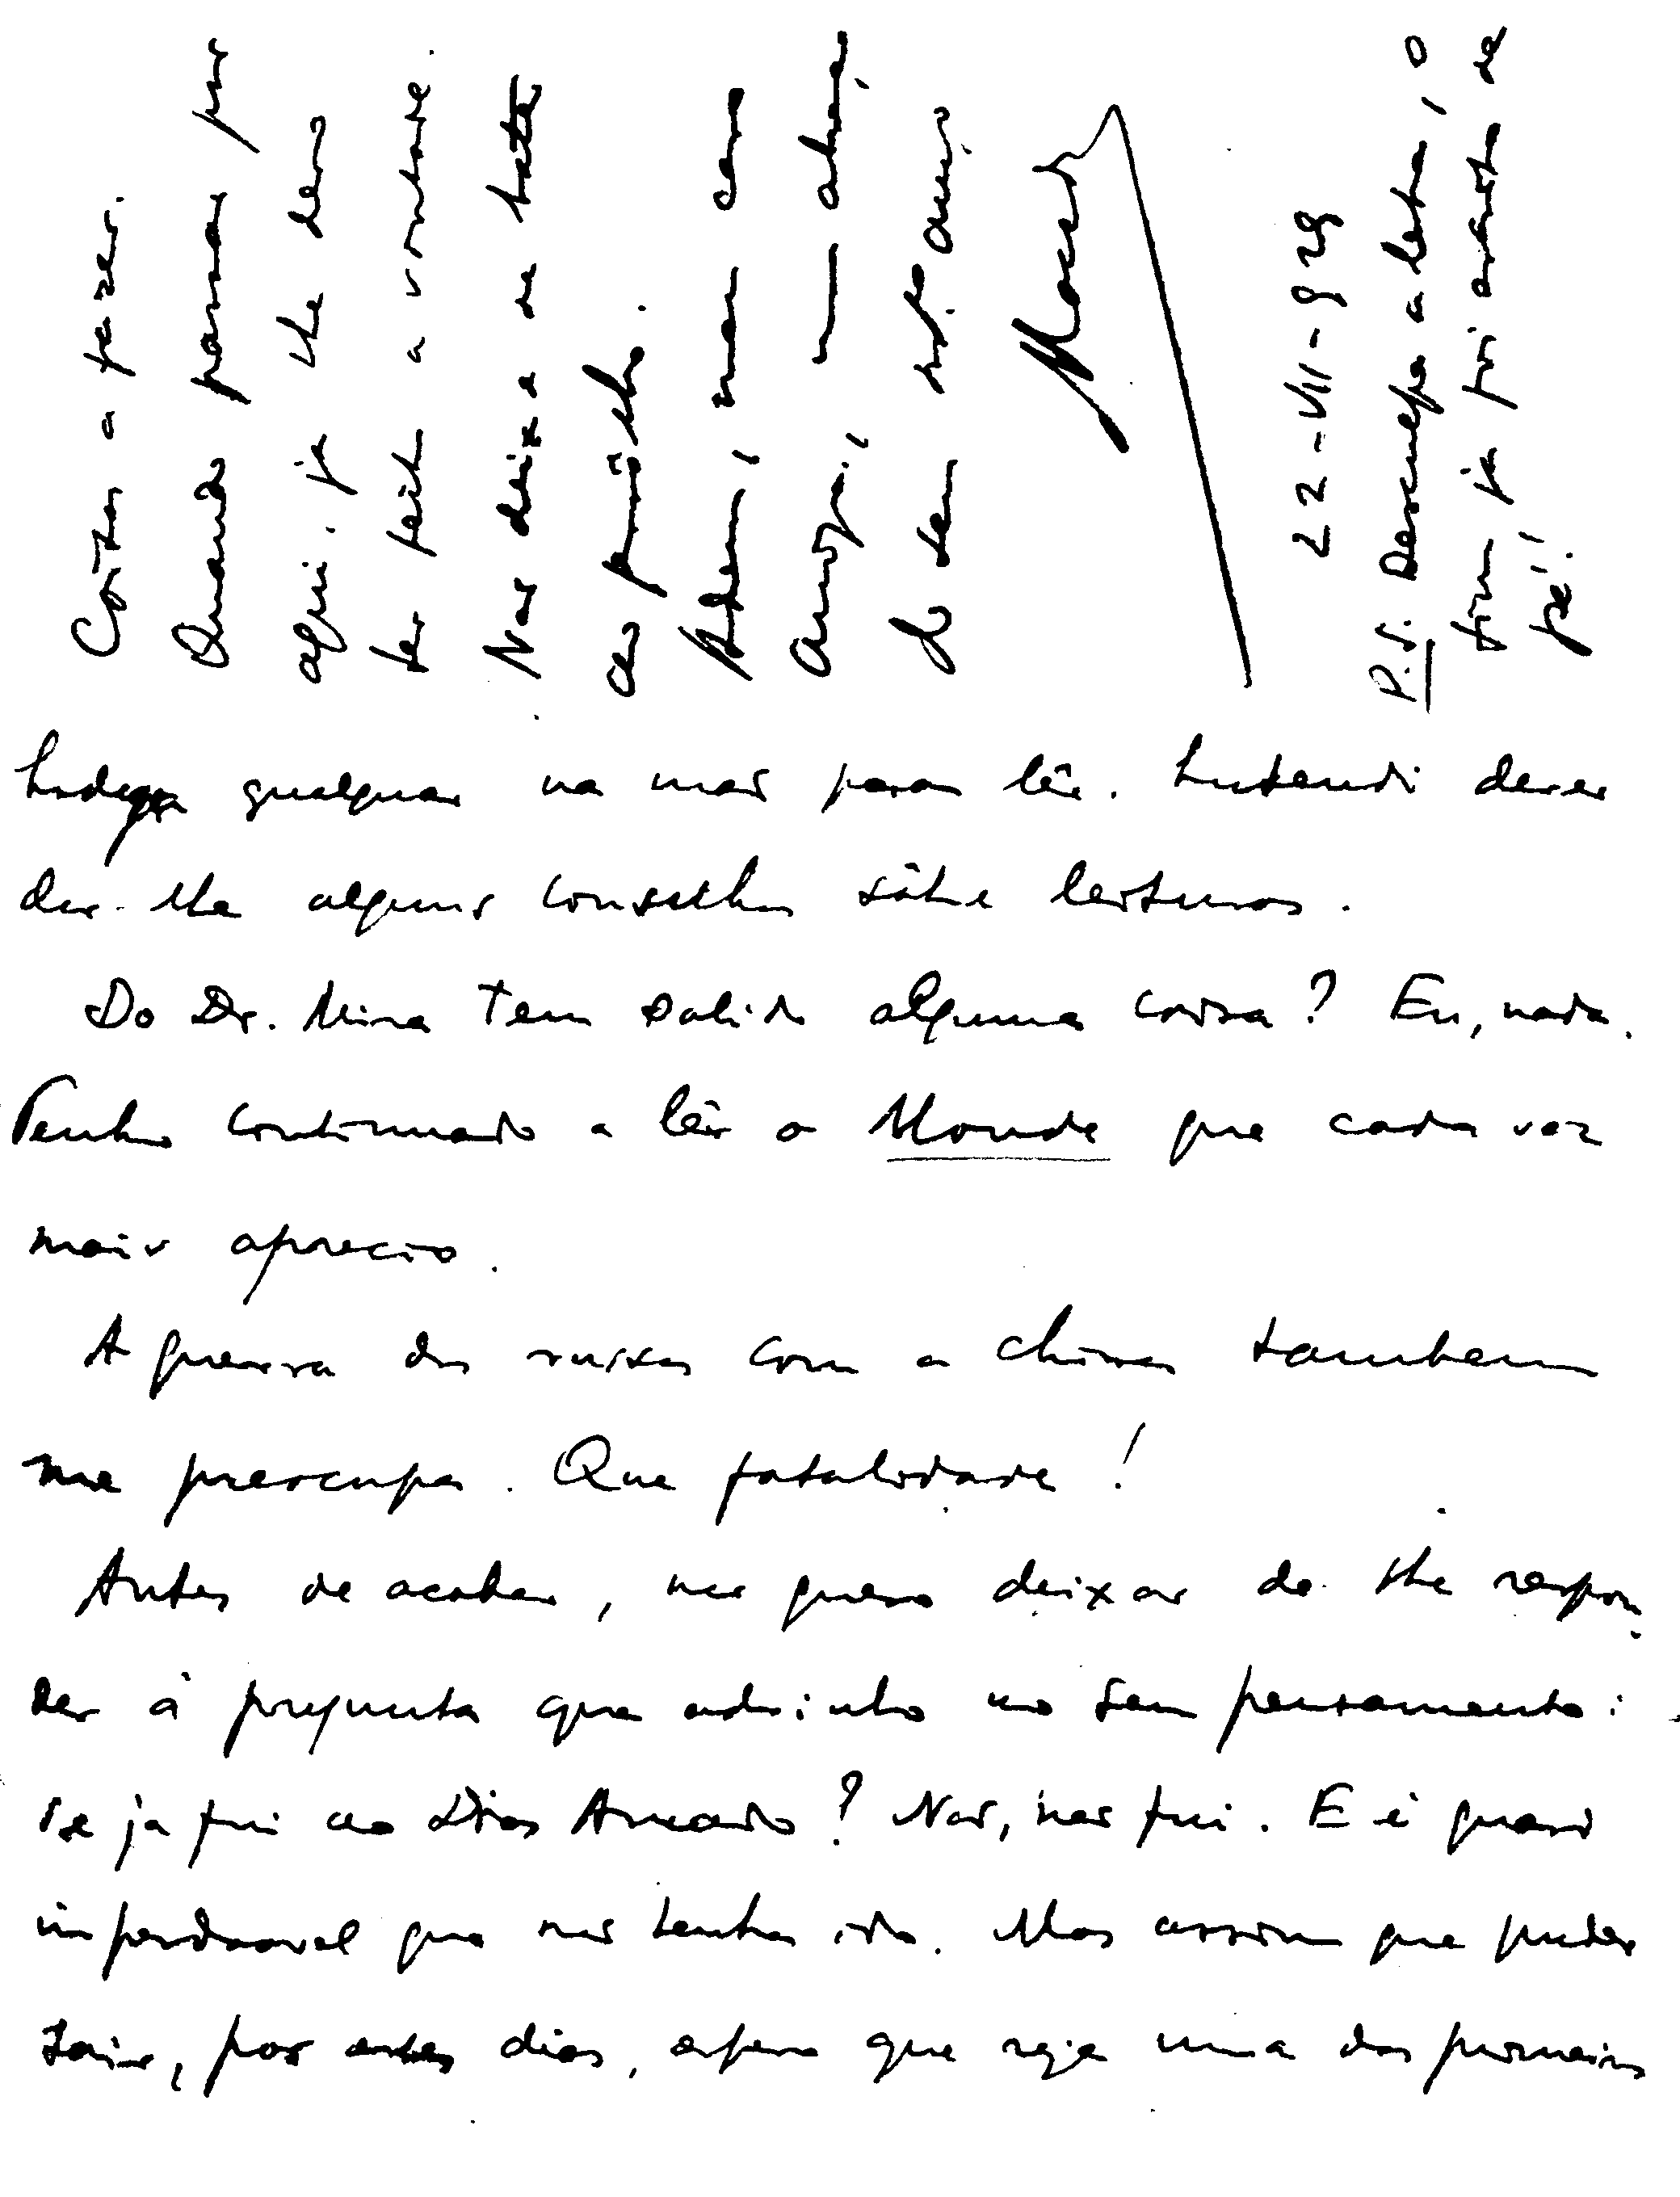 qualquer na mão para lêr. Entendi dever
dar-lhe alguns conselhos sôbre leituras.
Do Dr. Mira tem sabido alguma coisa? Eu, nada.
Tenho continuado a lêr o Monde que cada vez
mais aprecio.
A guerra dos russos com a China tambem
me preocupa. Que fatalidade!
Antes de acabar, não quero deixar de lhe respon
der á pregunta que adivinho no seu pensamento:
se já fui ao Dias Amado? Não, não fui. E é quasi
imperdoavel que não tenha ido. Mas assim que puder
sair, por estes dias, espero que seja uma das primeiras
Coisas a fazer.
Quando passar por
aqui, já lhe devo
ter feito a vontade.
Não deixe de bater
ao
Adeus, meu caro
Amigo, um abraço
do seu mto. amigo
22-VII-929
P.S. Desculpe a letra, o
fim já foi escrito de
pé!